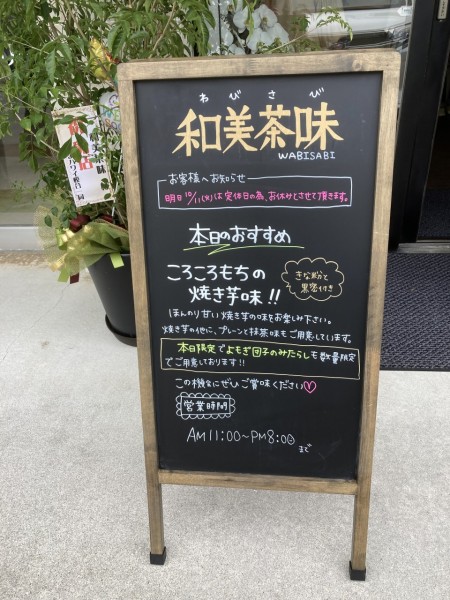 わびさび
和美茶味
WABISABI
お客様へお知らせ
明日10/11(火)は定休日の為、お休みとさせて頂きます。
本日のおすすめ
ころころもちの
焼き芋味!!
きな粉と
黒蜜付き
ほんのり甘い焼き芋の味をお楽しみ下さい。
焼き芋の他に、プレーンと抹茶味もご用意しています。
本日限定でよもぎ団子のみたらしも数量限定
でご用意しております!!
この機会にぜひご賞味ください♡
営業時間
AM11:00〜PM8:00
まで